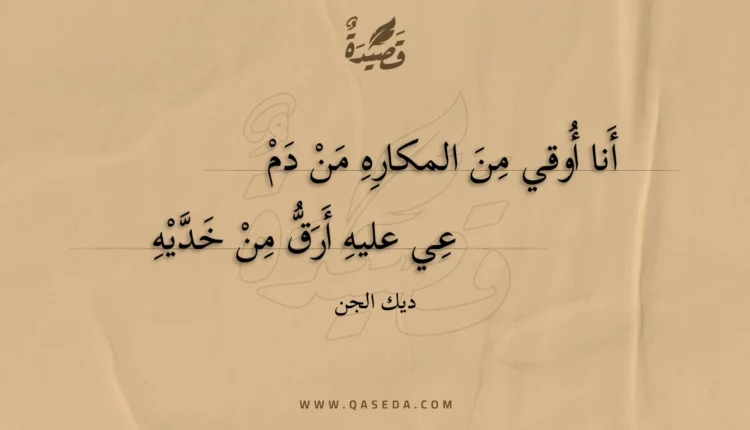 قَصِيدَةٌ
أَنا أُوقي مِنَ المكارِهِ مَنْ دَمْ
عِي عليهِ أَرَقُّ مِنْ خَدَّيْهِ
ديك الجن
WWW.QASEDA.COM